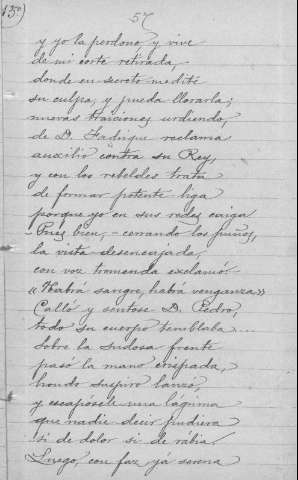 (15º)
57
y yo la perdono, y vive
de mi corte retirada,
donde en secreto medite
su culpa, y pueda llorarla;
nuevas traiciones urdiendo,
de D. Fadrique reclama
auxilio contra su Rey,
y con los rebeldes trata
de formar potente liga
porque yo en sus redes caiga
- Pues bien, - cerrando los puños,
la vista desencajada,
con voz tremenda exclamó:
«Habrá sangre, habrá venganza»
Calló y sentose D. Pedro,
todo su cuerpo temblaba....
Sobre la sudosa frente
pasó la mano crispada,
hondo suspiro lanzó,
y escapósele una lágrima
que nadie decir pudiera
si de dolor si de rábia.
Luego, con faz yá serena